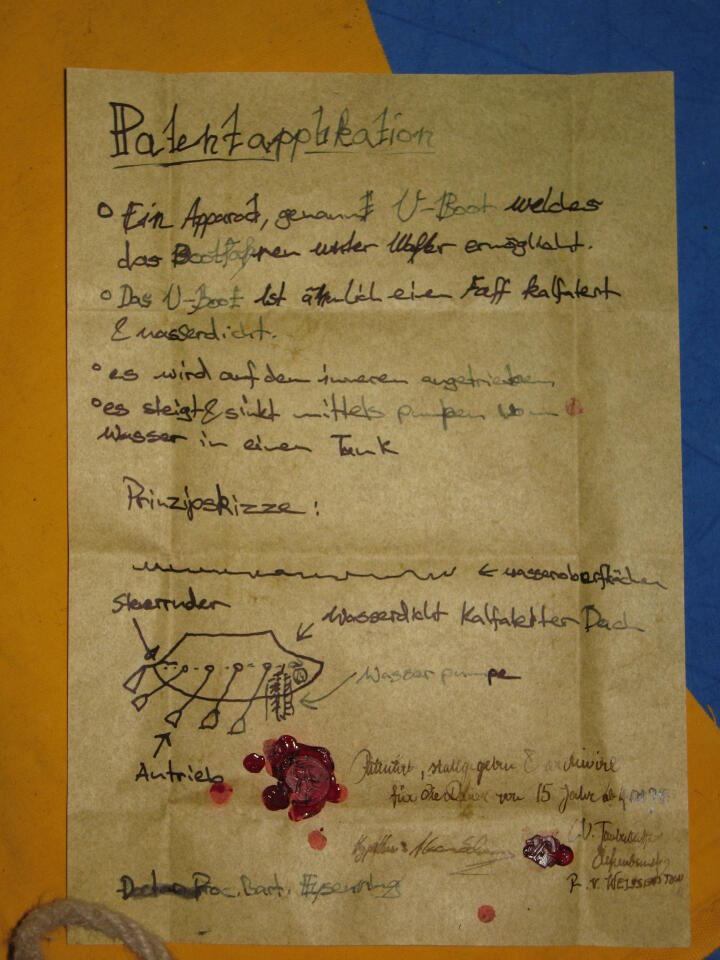 Patentapplikation
Ein Apparat, genannt U-Boot welches
das Bootfahren unter Wasser ermöglicht.
Das U-Boot ist ähnlich einen Faff kalfatert
& wasserdicht.
es wird auf dem inneren angetrieben
es steigt & sinkt mittels pumpen von
Wasser in einen Tank
Prinzipskizze:
← wasseroberflächen
Steerruder
Wasserdicht Kalfateter Dach
Wasserpumpe
Antrieb
Patentiert, stattgegeben & archiviert
für die Dauer von 15 Jahre ab
R. v. WEISSENSTEIN
Proc. Bart. Eysenring